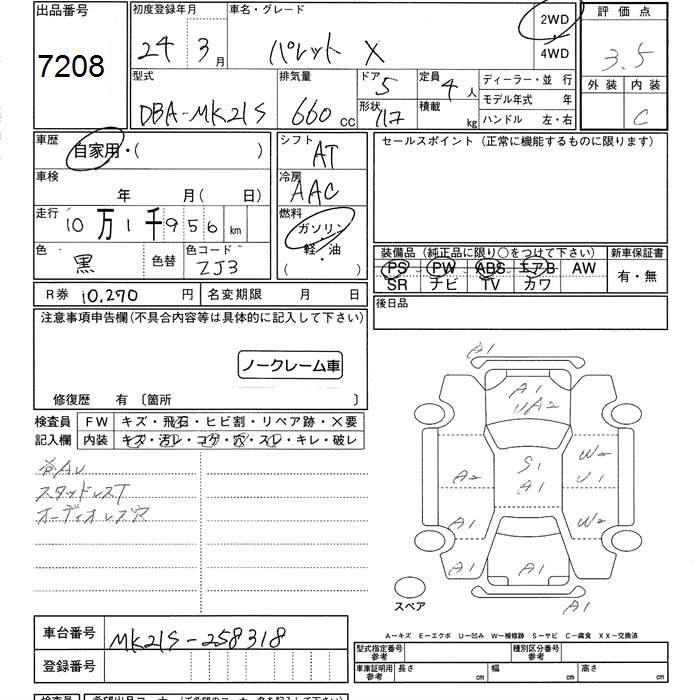 出品番号 初度登録年月 車名・グレード 2WD 評価点
7208 24年 3月 パレット X 4WD 3.5
外装 内装
型式 排気量 ドア 5 定員 4人 ディーラー・並 行
DBA-MK21S 660cc 形状 積載 kg モデル年式 年
ハンドル 左・右 C
車歴 自家用・( ) シフト AT セールスポイント(正常に機能するものに限ります)
車検 年 月(日) 冷房 AAC
走行 10万1千956km 燃料 ガソリン
軽・油
( )
色 黒 色替 色コード ZJ3
装備品(純正品に限り○をつけて下さい) 新車保証書
PS PW ABS エアB AW 有・無
SR ナビ TV カワ
R券 10,270円 名変期限 月 日 後日品
注意事項申告欄(不具合内容等は具体的に記入して下さい)
ノークレーム車
修復歴 有〔箇所 〕
検査員 FW キズ・飛石・ヒビ割・リペア跡・×要
記入欄 内装 キズ・汚レ・コゲ・穴・スレ・キレ・破レ
スタッドレスT
オーディオレス穴
A1
A1
UA2
A2 S1 W2
A1 U1
A1 W2
A1 A1 A1
A1
スペア
A-キズ E-エクボ U-凹み W-補修跡 S-サビ C-腐食 XX-交換済
車台番号 MK21S-258318
登録番号
型式指定番号 参考 種別区分番号 参考
車庫証明用 参考 長さ cm 幅 cm 高さ cm